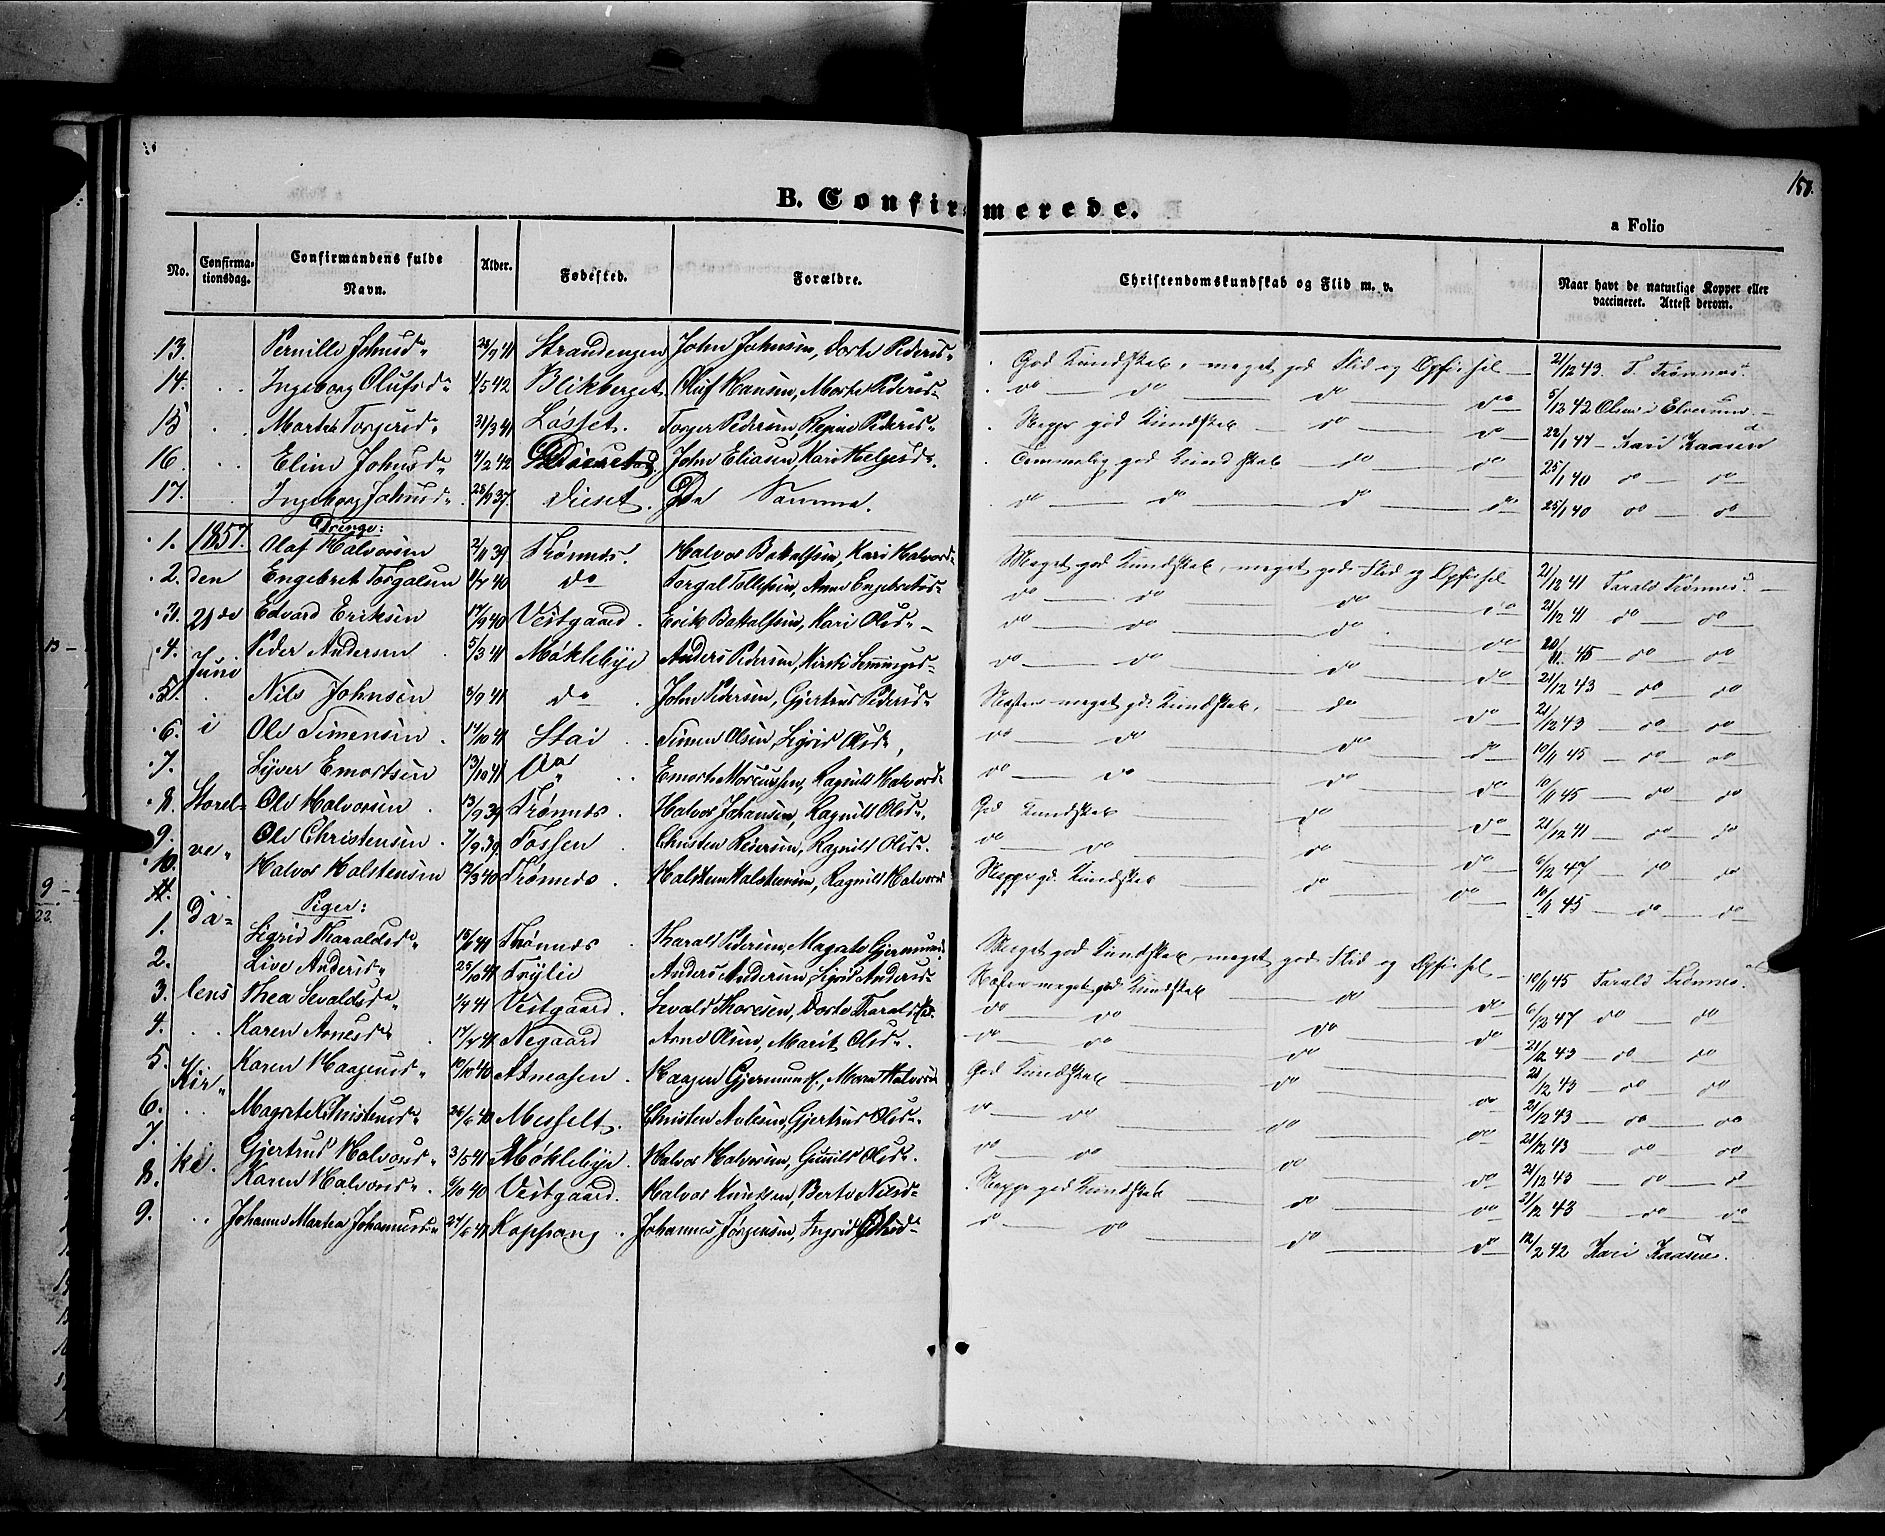 158.
B. Confirmerede.
a Folio
No. Confirmationsdag. Confirmandens fulde Navn. Alder. Fødested. Forældre. Christendomskundskab og Flid m. v. Naar havt de naturlige Kopper eller vaccineret. Attest derom.
13. Pernille Johnsd. 28/9 41 Strandengen John Johnsen, Dorte Peders. God Kundskab, meget god Flid og Opførsel 21/12 43. T. Trønnes.
14. Ingeborg Olufsd. 1/5 42 Blikberget Oluf Hansen, Marte Peders. do do do do 5/12 42 Olsen i Elverum
15 Martha Torgersd. 31/3 41 Løsset. Torger Pedersen, Regine Peders. Neppe god Kundskab do do 22/1 44 Kari Kaasen
16. Eline Johnsd. 4/2 42 John Eliasen, Kari Helgesd. Temmelig god Kundskab do do 25/1 40 do do
17. Ingeborg Johnsd. 28/9 37. Dieset. De Samme. do do do do 25/1 40 do do
1857. Drenge:
1. Olaf Halvorsen 2/11 39 Trønnes. Halvor Battolfsen, Kari Halvord. Meget god Kundskab, meget god Flid og Opførsel 21/12 41 Tarald Trønnes.
2. den Engebret Torgalsen 8/7 40 do Torgal Tollefsen, Anne Engebretsd. do do do do 21/12 41 do do
3. 21de Edvard Eriksen 17/9 40 Vestgaard. Erik Battolfsen, Kari Olsd. do do do do 20/11 45 do do
4. Juni Peder Andersen 5/3 41 Møklebye Anders Pedersen, Kirsti Semmingsd. do do do do 21/12 43 do do
5. Nils Johnsen 3/9 41 do John Pedersen, Gjertrud Pedersd. Næsten meget gd. Kundskab, do do 21/12 43 do do
6. i Ole Simensen 14/10 41 Stai Simen Olsen, Sigrid Olsd. do do do do 10/11 45 do do
7. Syver Emortsen 13/10 41 do Emorte Morcussen, Ragnild Halvord. do do do do 10/11 45 do do
8. Storel- Ole Halvorsen 13/9 39 Trønnes. Halvor Johansen, Ragnild Olsd. God Kundskab do do 21/12 41 do do
9. ve Ole Christensen 7/9 39 Fossen Christen Pedersen, Ragnild Olsd. do do do do 6/12 47 do do
10. Halvor Halstensen 12/3 40 Trønnes Halsten Halstensen, Ragnild Halvorsd Neppe gd. Kundskab do do 10/11 45 do do
11.
da- Piger:
1. Sigrid Tharaldsd. 15/6 41 Trønnes Tharald Pedersen, Magrete Gjermunds. Meget god Kundskab, meget god Flid og Opførsel 10/11 45 Tarald Trønnes.
2. Live Andersd. 25/10 41 Trylie Anders Andersen, Sigrid Andersd. Næsten meget god Kundskab do do 6/12 47 do do
3. lens Thea Sevaldsd. 1/9 41 Vestgaard. Sevald Thoresen, Dorte Tharaldsd. do do do do 21/12 43 do do
4. Karen Arnesd. 17/4 41 Negaard Arne Olsen, Marit Olsd. do do do do 21/12 43 do do
5. Kir- Karen Haagensd. 10/10 40 Atneosen. Haagen Gjermunds., Maren Halvorsd God Kundskab do do 21/12 43 do do
6. Magrete Christensd. 26/6 42 Messelt. Christen Aslesen, Gjertrud Olsd. do do do do 21/12 43 do do
7. ke. Gjertrud Halvorsd. 3/5 41 Møklebye. Halvor Halvorsen, Gunild Olsd. do do do do 21/12 43 do do
8. Karen Halvorsd. 6/10 40 Vestgaard. Halvor Knudsen, Berte Nilsd. Neppe god Kundskab do do 21/12 43 do do
9. Johanne Martea Johannesd. 24/6 41 Koppang. Johannes Jørgensen, Ingrid Olsd. do do do do 12/2 42 Kari Kaasen.